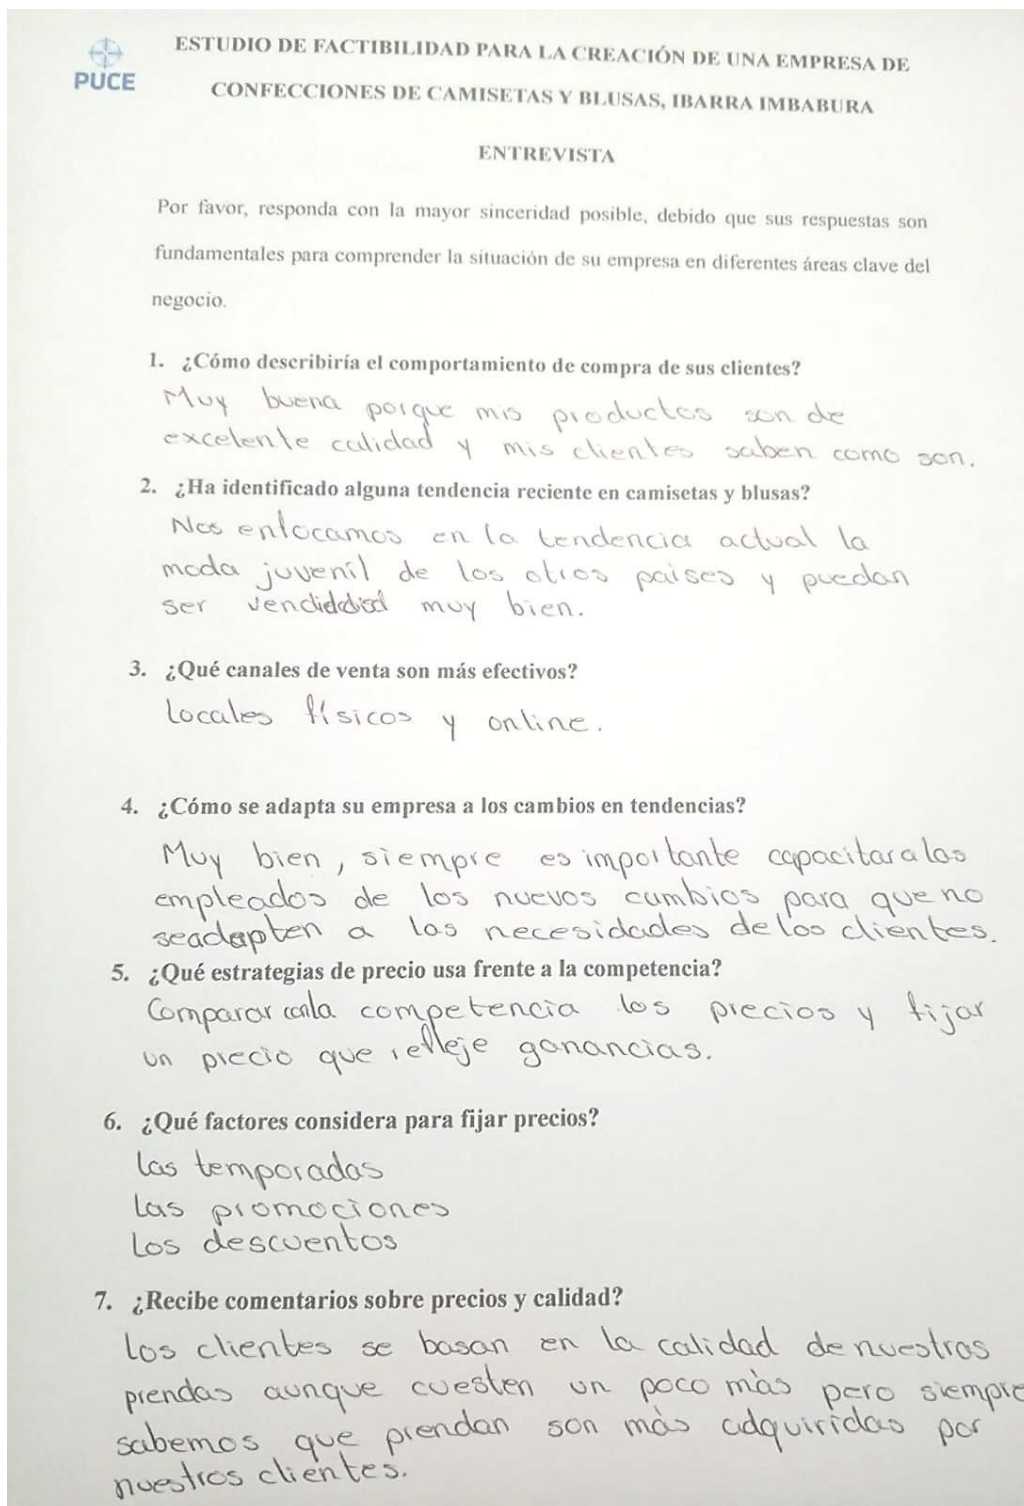 PUCE
ESTUDIO DE FACTIBILIDAD PARA LA CREACIÓN DE UNA EMPRESA DE
CONFECCIONES DE CAMISETAS Y BLUSAS, IBARRA IMBABURA
ENTREVISTA
Por favor, responda con la mayor sinceridad posible, debido que sus respuestas son
fundamentales para comprender la situación de su empresa en diferentes áreas clave del
negocio.
1. ¿Cómo describiría el comportamiento de compra de sus clientes?
Muy buena porque mis productos son de
excelente calidad y mis clientes saben como son.
2. ¿Ha identificado alguna tendencia reciente en camisetas y blusas?
Nos enfocamos en la tendencia actual la
moda juvenil de los otros paises y puedan
ser muy bien.
3. ¿Qué canales de venta son más efectivos?
Locales físicos y online.
4. ¿Cómo se adapta su empresa a los cambios en tendencias?
Muy bien, siempre es importante capacitar a los
empleados de los nuevos cambios para que no
se adapten a las necesidades de los clientes.
5. ¿Qué estrategias de precio usa frente a la competencia?
Comparar con la competencia los precios y fijar
un precio que refleje ganancias.
6. ¿Qué factores considera para fijar precios?
Las temporadas
Las promociones
Los descuentos
7. ¿Recibe comentarios sobre precios y calidad?
Los clientes se basan en la calidad de nuestras
prendas aunque cuesten un poco màs pero siempre
sabemos que prendan son màs adquiridas por
nuestros clientes.